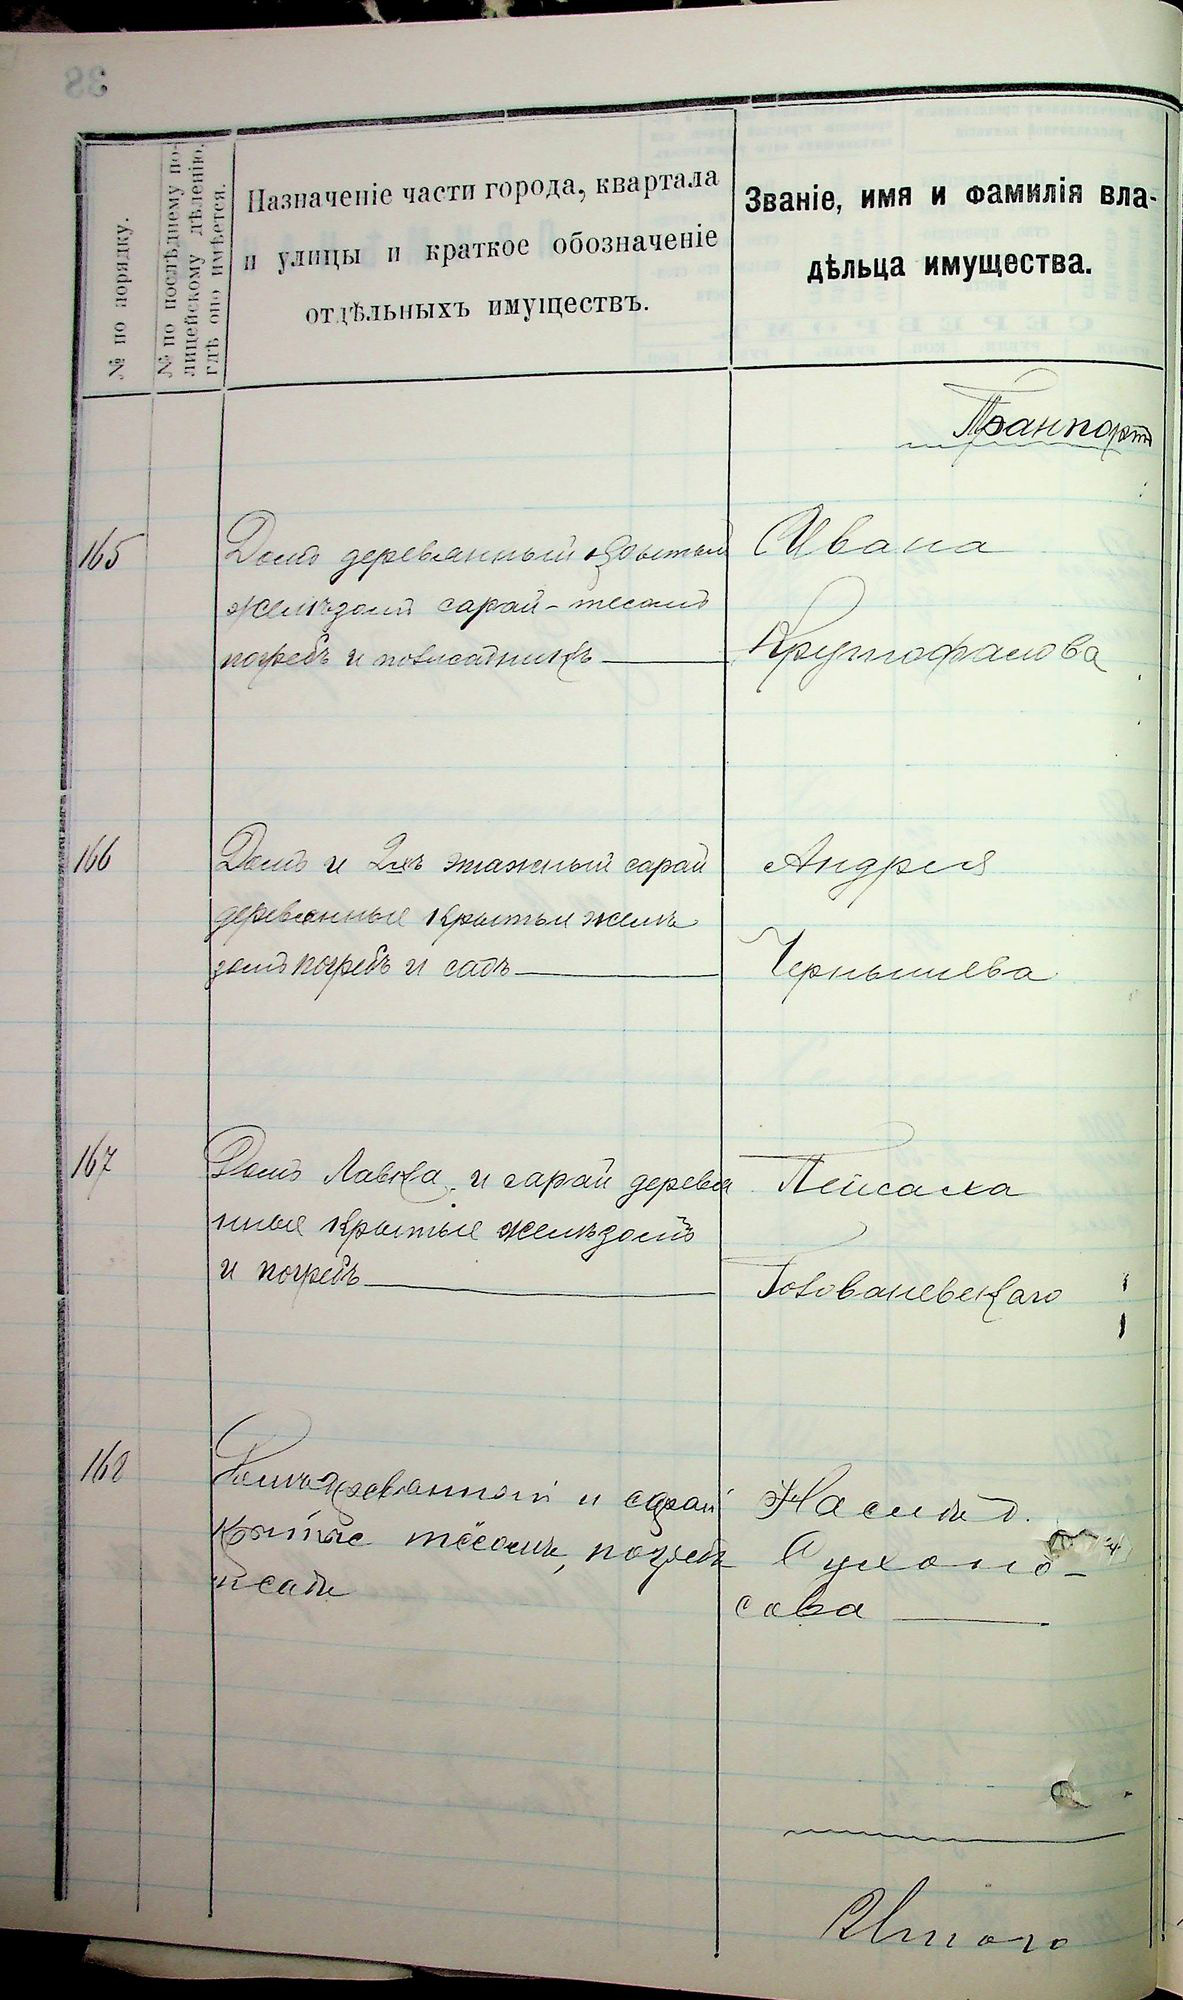 № по порядку.
№ по послѣднему по-
лицейскому дѣленію,
гдѣ оно имѣется.
Назначеніе части города, квартала
и улицы и краткое обозначеніе
отдѣльныхъ имуществъ.
Званіе, имя и фамилія вла-
дѣльца имущества.
Транпортъ
165
Домъ деревянный крытый
желѣзомъ сарай - тесомъ
погребъ и
Ивана
166
Домъ и 2хъ этажный сарай
деревянные крытыи желѣ
зомъ погребъ и садъ
Андрея
Чернышева
167
Домъ Лавка и сарай деревя
нные крытые желѣзомъ
и погребъ
Пейсаха
Голованевскаго
168
Домъ деревянной и сарай
крытые тёсомъ, погребъ
и садъ
Сухоно-
сова
Итого